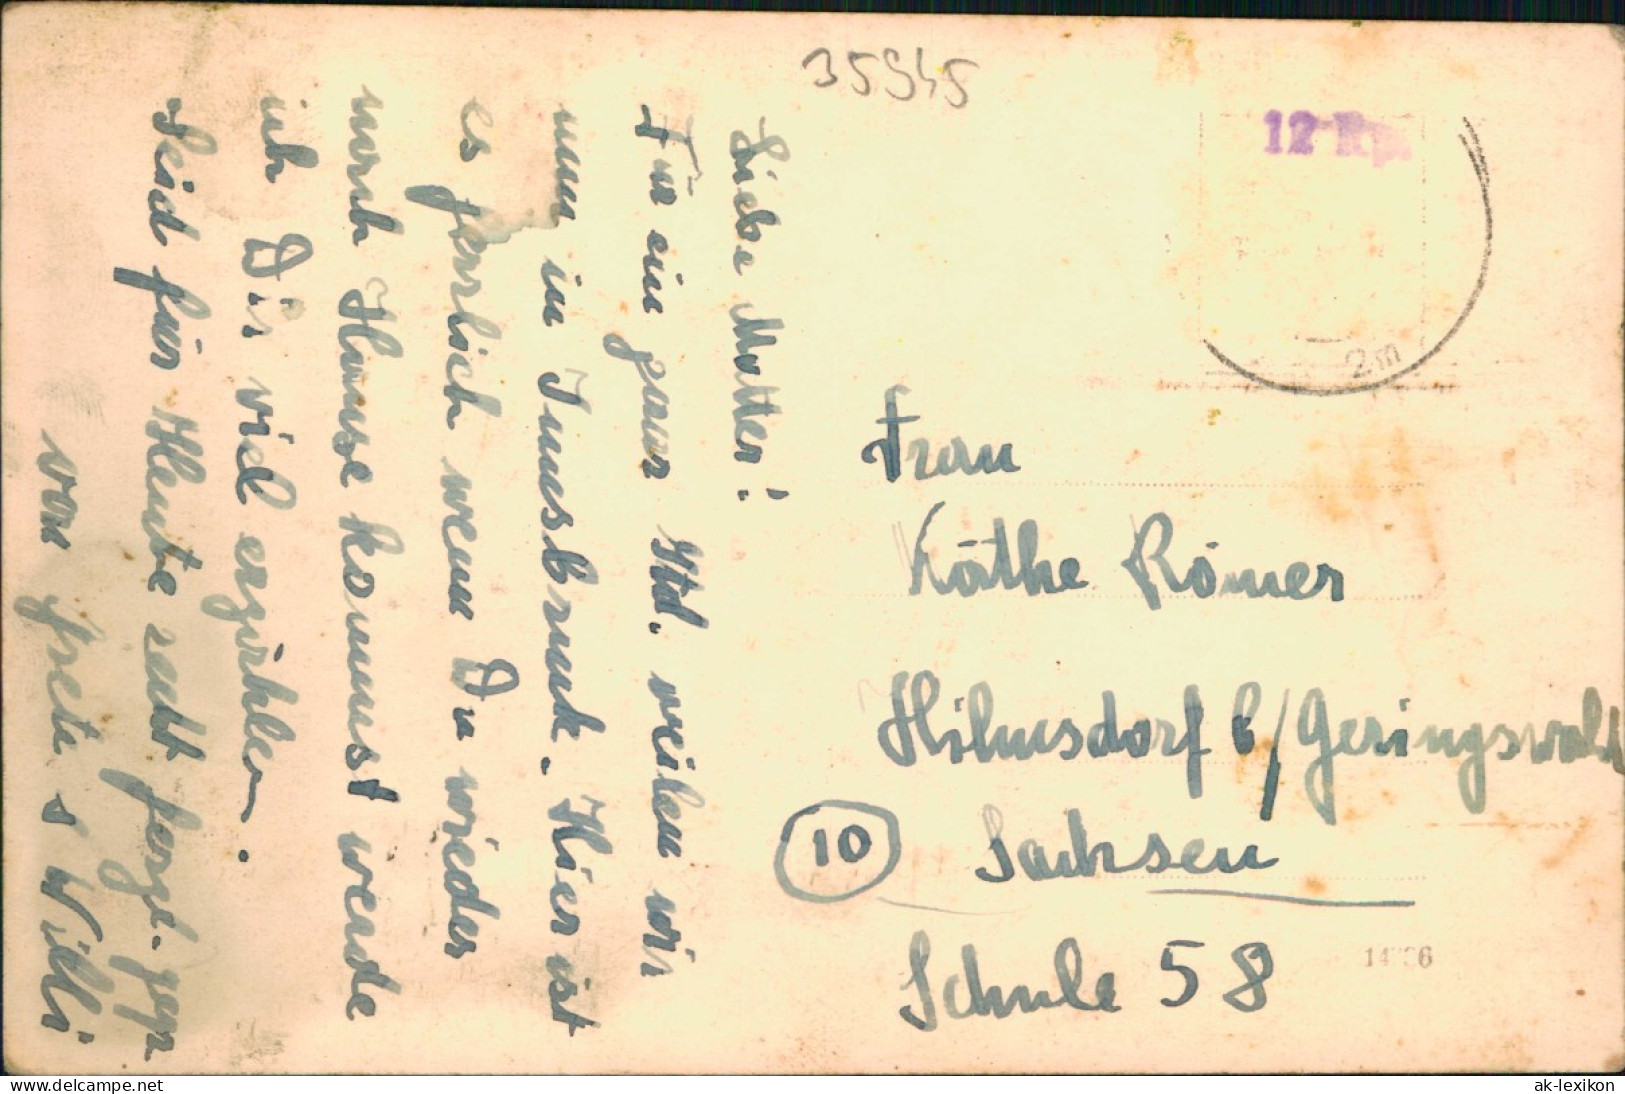 35945
12 Rp.
2m
Liebe Mutter!
Für ein paar Std. weilen wir
nun in Innsbruck. Hier ist
es herrlich wenn Du wieder
nach Hause kommst werde
ich Dir viel erzählen.
Seid für Heute recht herzl. gegr.
von Grete s Willi
Frau
Käthe Römer
Hilmsdorf b/Geringswald
10 Sachsen
Schule 58
delcampe.net
ak-lexikon